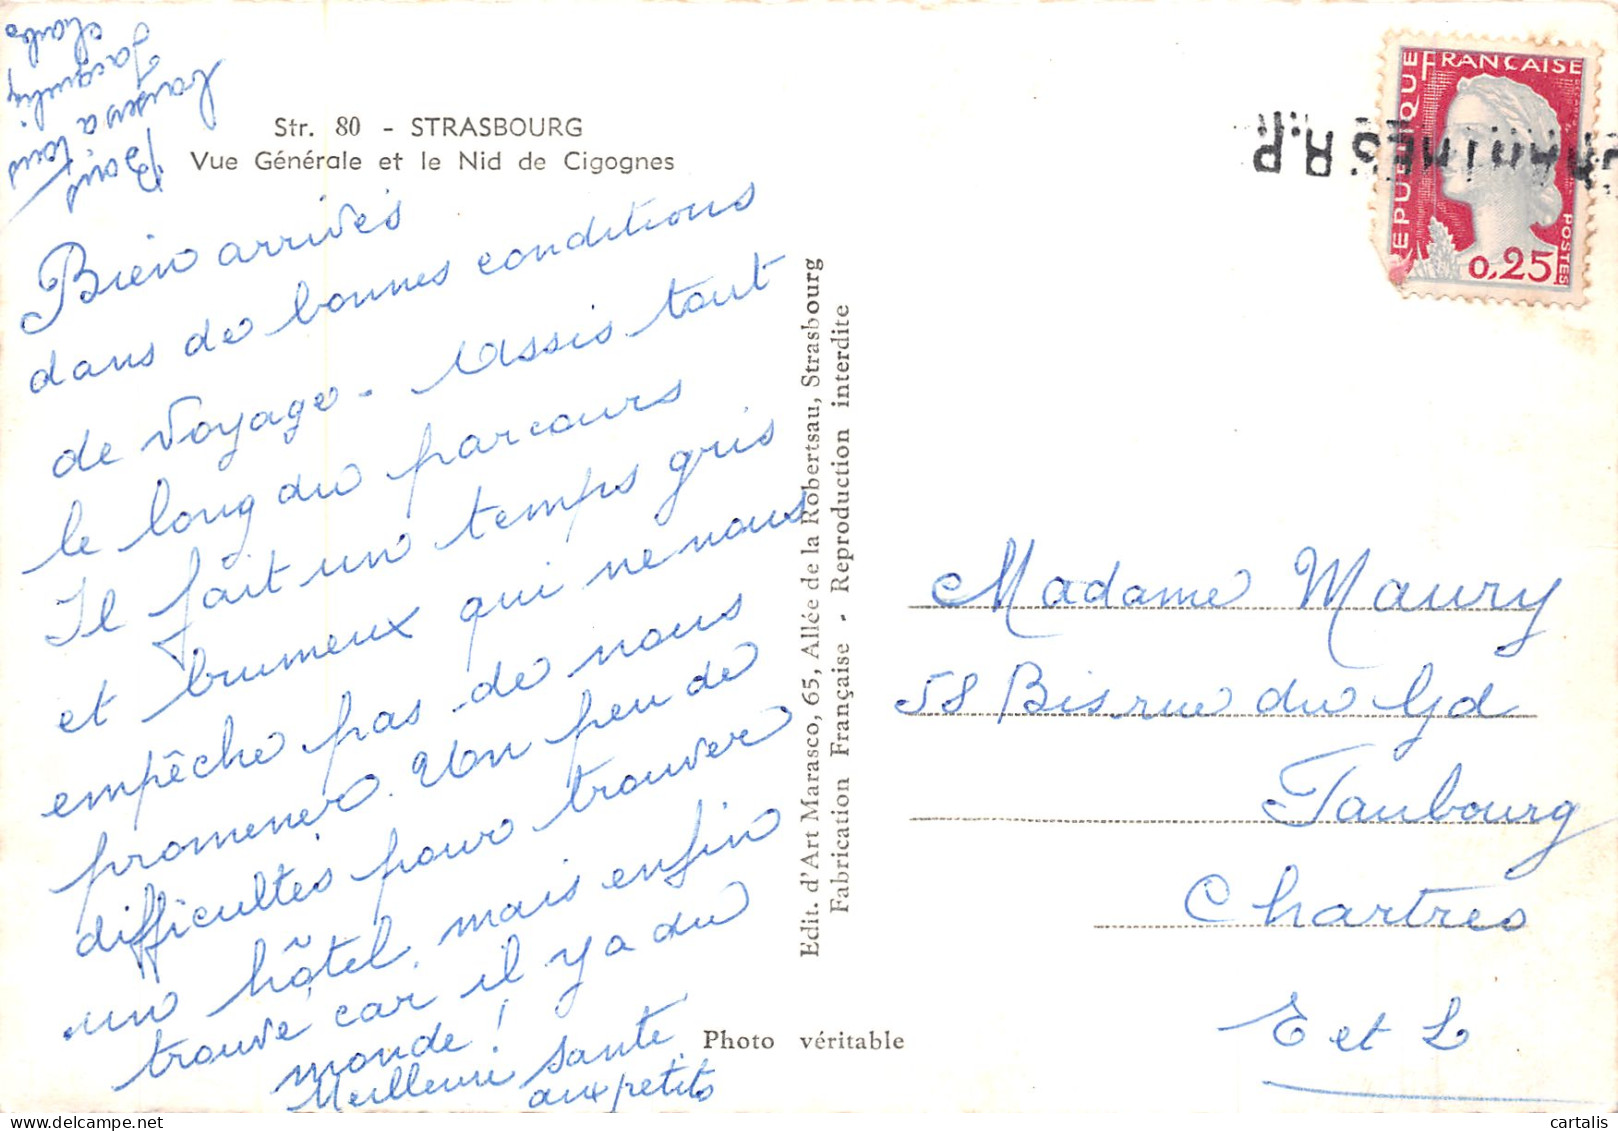 Str. 80 - STRASBOURG
Vue Générale et le Nid de Cigognes
Bien arrivés
dans de bonnes conditions
de voyage - Assis tout
le long du parcours
Il fait un temps gris
et brumeux qui ne nous
empêche pas de nous
promener. Un peu de
difficultés pour trouver
un hôtel, mais enfin
trouvé car il y a du
monde !
Meilleure santé
aux petits
Bons
baisers à tous
Jacqueline
Charles
Edit. d'Art Marasco, 65, Allée de la Robertsau, Strasbourg
Fabrication Française - Reproduction interdite
Photo véritable
REPUBLIQUE FRANÇAISE
POSTES
0,25
R.P.
Madame Maury
58 Bis rue du Gd
Faubourg
Chartres
E et L
cartalis